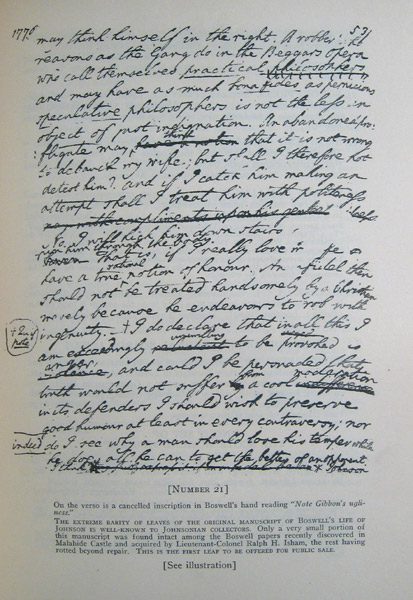 1776 may think himself in the right. A robber who 531
reasons as the Gang do in the Beggars Opera
who call themselves practical philosophers
and may have as much bona fides as pernicious
speculative philosophers is not the less an
object of just indignation. An abandoned pro-
fligate may think that it is not wrong
to debauch my wife; but shall I therefore not
detest him? and if I catch him making an
attempt shall I treat him with politeness
No I will kick him down stairs
run him through the body
that is, if I really love my wife or
have a true rational notion of honour. An Infidel then
should not be treated handsomely by a Christian
merely because he endeavours to rob with
ingenuity. + I do declare that in all this I
am exceedingly unwilling to be provoked to
anger, and could I be persuaded that
truth would not suffer from a cool moderation
in its defenders I should wish to preserve
good humour at least in every controversy; nor
indeed do I see why a man should lose his temper while
he does all he can to get the better of an opponent
[NUMBER 21]
On the verso is a cancelled inscription in Boswell's hand reading "Note Gibbon's ugli-
ness."
THE EXTREME RARITY OF LEAVES OF THE ORIGINAL MANUSCRIPT OF BOSWELL'S LIFE OF
JOHNSON IS WELL-KNOWN TO JOHNSONIAN COLLECTORS. Only a very small portion of
this manuscript was found intact among the Boswell papers recently discovered in
Malahide Castle and acquired by Lieutenant-Colonel Ralph H. Isham, the rest having
rotted beyond repair. THIS IS THE FIRST LEAF TO BE OFFERED FOR PUBLIC SALE.
[See illustration]